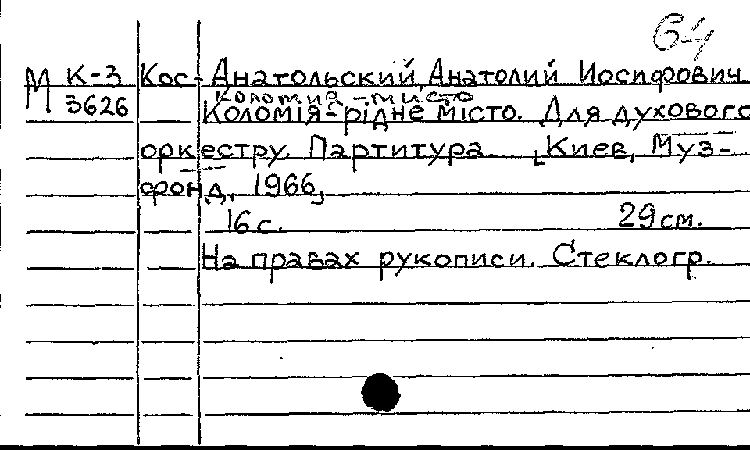 64
М К-3 Кос-Анатольский, Анатолий Иосифович
Коломия - мисто
3626 Коломія-рідне місто. Для духового
оркестру. Партитура [Киев, Муз-
фонд, 1966]
16 с. 29 см.
На правах рукописи. Стеклогр.